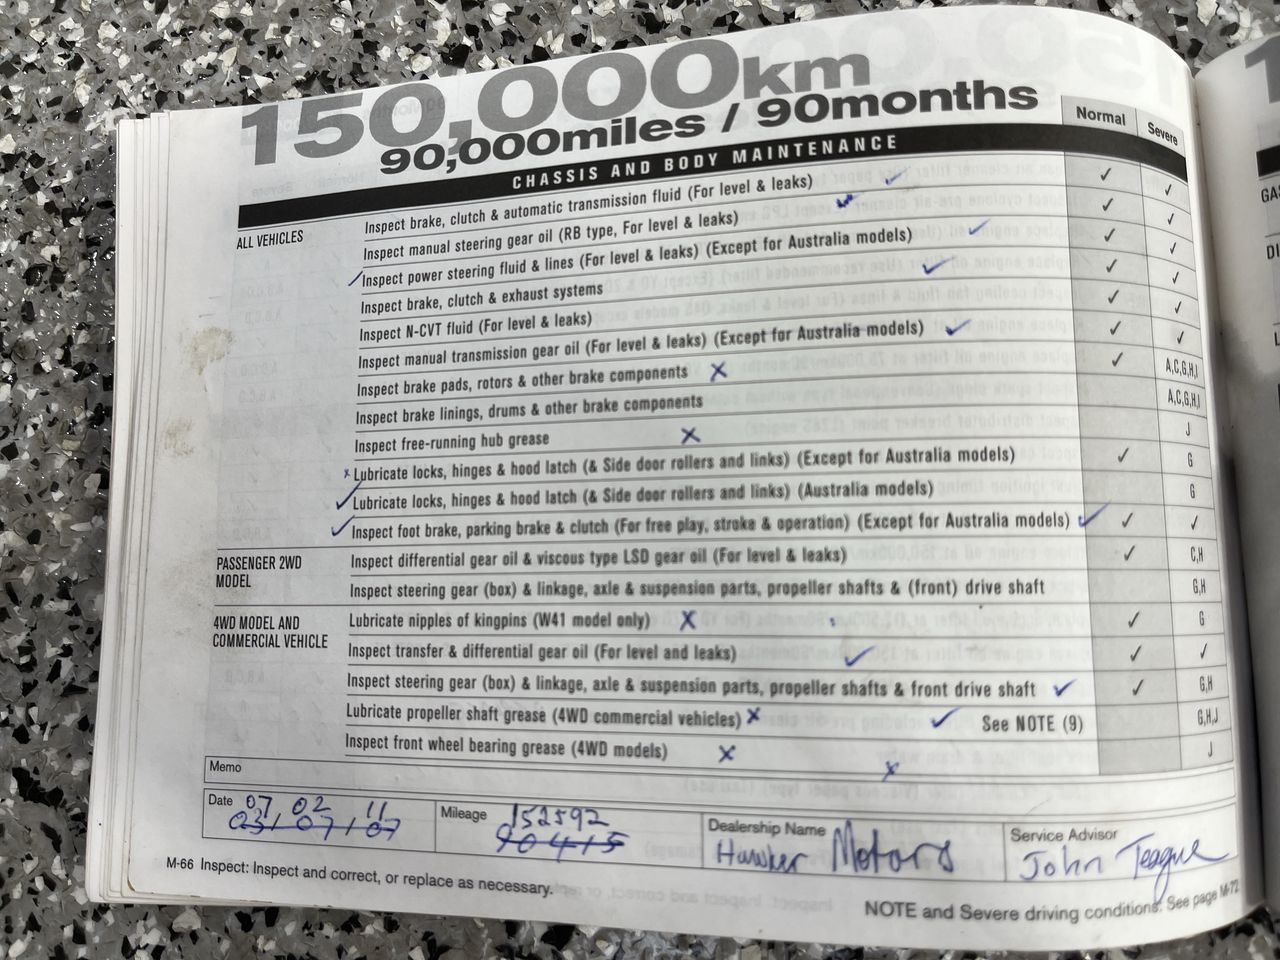 150,000km
90,000miles / 90months
Normal Severe
CHASSIS AND BODY MAINTENANCE
ALL VEHICLES
Inspect brake, clutch & automatic transmission fluid (For level & leaks) ✓ ✓ ✓
Inspect manual steering gear oil (RB type, For level & leaks) ✓ ✓
Inspect power steering fluid & lines (For level & leaks) (Except for Australia models) ✓ ✓
Inspect brake, clutch & exhaust systems ✓ ✓ ✓
Inspect N-CVT fluid (For level & leaks) ✓ ✓
Inspect manual transmission gear oil (For level & leaks) (Except for Australia models) ✓ ✓ ✓
Inspect brake pads, rotors & other brake components X ✓ A,C,G,H,I
Inspect brake linings, drums & other brake components A,C,G,H,I
Inspect free-running hub grease X J
x Lubricate locks, hinges & hood latch (& Side door rollers and links) (Except for Australia models) ✓ G
✓ Lubricate locks, hinges & hood latch (& Side door rollers and links) (Australia models) G
✓ Inspect foot brake, parking brake & clutch (For free play, stroke & operation) (Except for Australia models) ✓ ✓ ✓
PASSENGER 2WD
MODEL
Inspect differential gear oil & viscous type LSD gear oil (For level & leaks) ✓ C,H
Inspect steering gear (box) & linkage, axle & suspension parts, propeller shafts & (front) drive shaft G,H
4WD MODEL AND
COMMERCIAL VEHICLE
Lubricate nipples of kingpins (W41 model only) X ✓ G
Inspect transfer & differential gear oil (For level and leaks) ✓ ✓ ✓
Inspect steering gear (box) & linkage, axle & suspension parts, propeller shafts & front drive shaft ✓ ✓ G,H
Lubricate propeller shaft grease (4WD commercial vehicles) X ✓ See NOTE (9) G,H,J
Inspect front wheel bearing grease (4WD models) X J
Memo x
Date 07 02 11
03/07/07
Mileage 152592
90415
Dealership Name
Hawker Motors
Service Advisor
John Teague
M-66 Inspect: Inspect and correct, or replace as necessary.
NOTE and Severe driving conditions: See page M-72